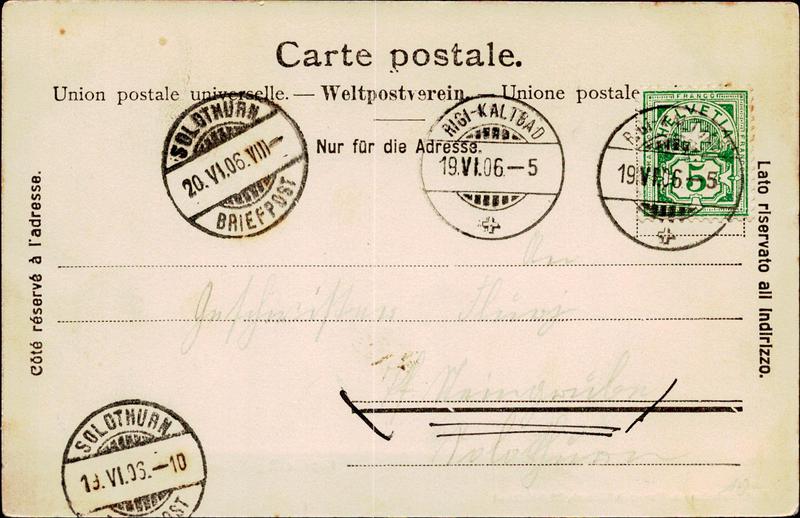 Carte postale.
Union postale universelle. — Weltpostverein. — Unione postale
Nur für die Adresse.
SOLOTHURN
20.VI.06.VIII
BRIEFPOST
RIGI-KALTBAD
19.VI.06.-5
FRANCO
HELVETIA
5
19.VI.06.-5
Côté réservé à l'adresse.
Lato riservato all indirizzo.
An
Geschwister Flury
Steingrube
Solothurn
SOLOTHURN
19.VI.06.-10